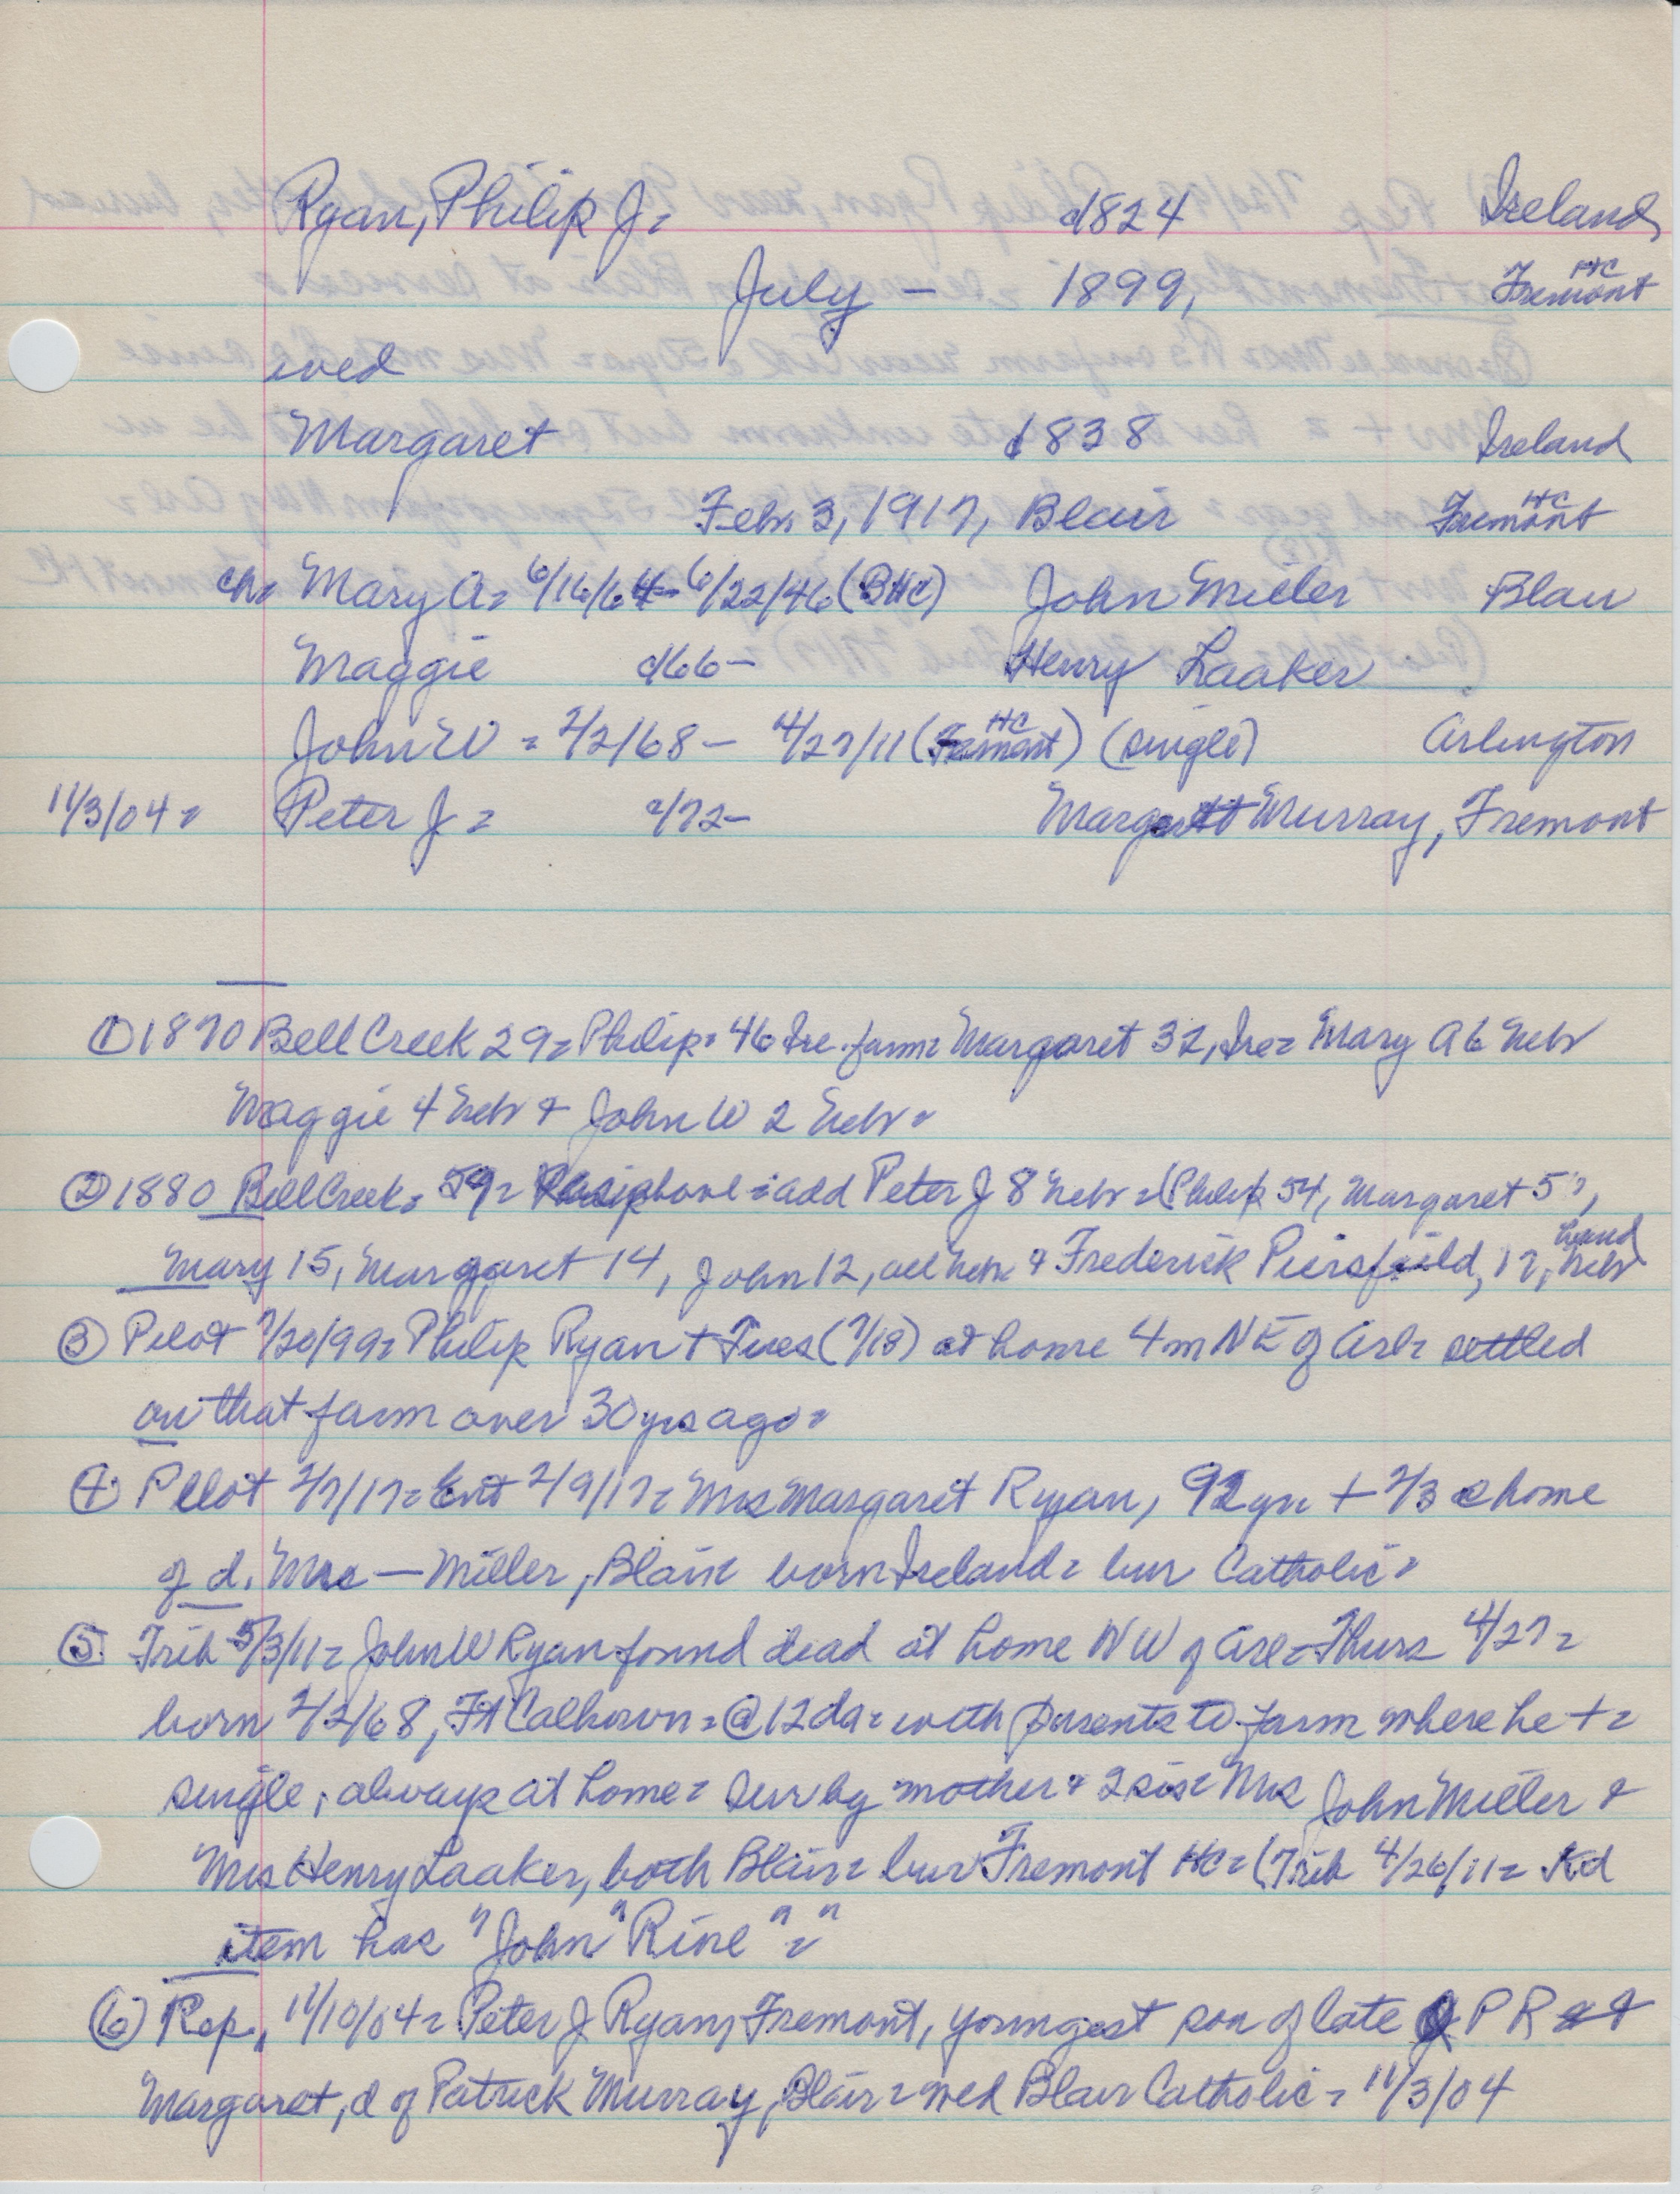 Ryan, Philip J = c1824 Ireland
July – 1899, Fremont HC
wed
Margaret c1838 Ireland
Feb. 3, 1917, Blair Fremont HC
ch= Mary A= 6/16/64 – 6/22/46 (BHC) John Miller Blair
Maggie c/66 – Henry Laaker
John W = 2/2/68 – 4/27/11 (Fremont HC) (single) Arlington
11/3/04 = Peter J = c/72 – Margaret Murray, Fremont
① 1870 Bell Creek 29= Philip= 46 Ire. farm= Margaret 32, Ire= Mary A 6 Nebr
Maggie 4 Nebr & John W 2 Nebr=
② 1880 Bell Creek= 59= above = add Peter J 8 Nebr = (Philip 54, Margaret 57,
Mary 15, Marggaret 14, John 12, all Nebr & Frederick Piersfield, 17, hand Nebr
③ Pilot 7/20/99= Philip Ryan + Tues (7/18) at home 4m NE of Arl= settled
on that farm over 30 yrs ago=
④ Pilot 2/7/17= Ent 2/9/17= Mrs Margaret Ryan, 92 yrs + 2/3 @ home
of d. Mrs — Miller, Blair= born Ireland= bur Catholic=
⑤ Trib 5/3/11= John W Ryan found dead at home NW of Arl= Thurs 4/27=
born 2/2/68, Ft Calhoun= @ 12 da= with parents to farm where he +=
single, always at home= sur by mother & 2 sis= Mrs John Miller &
Mrs Henry Laaker, both Blair= bur Fremont HC= (Trib 4/26/11=
item has "John" Rine" = "
⑥ Rep., 11/10/04= Peter J Ryan, Fremont, youngest son of late P R &
Margaret, d of Patrick Murray, Blair= wed Blair Catholic= 11/3/04